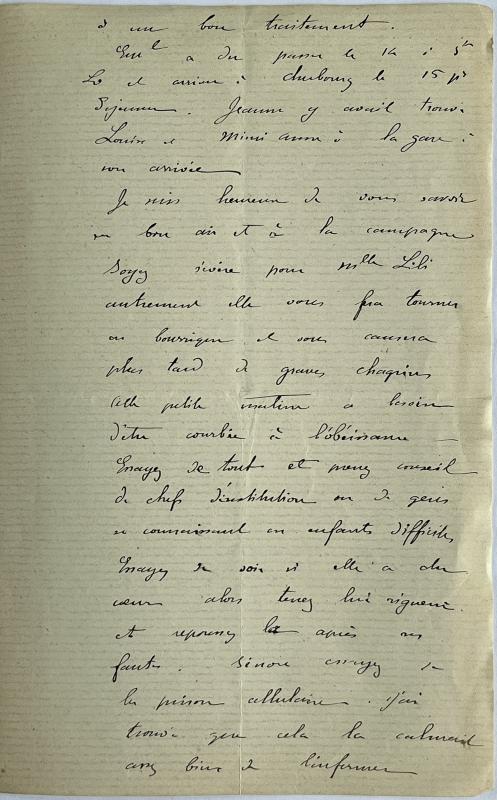 à un bon traitement.
Eml a du passer le 14 à
et arriver à Cherbourg le 15 pr
déjeuner. Jeanne y avait trouvé
Louise et Mimi à la gare à
son arrivée
Je suis heureux de vous savoir
en bon air et à la campagne
Soyez sévère pour Mlle Lili
autrement elle vous fera tourner
en bourrique et vous causera
plus tard de graves chagrins
Cette petite mutine a besoin
d'être courbée à l'obéissance —
Essayez de tout et prenez conseil
de chefs d'institution ou de gens
se connaissant en enfants difficiles
Essayez de voir si elle a du
cœur alors tenez lui rigueur
et repoussez la après ses
fautes. Sinon essayez de
la prison cellulaire. J'ai
trouvé que cela la calmait
assez bien de l'enfermer